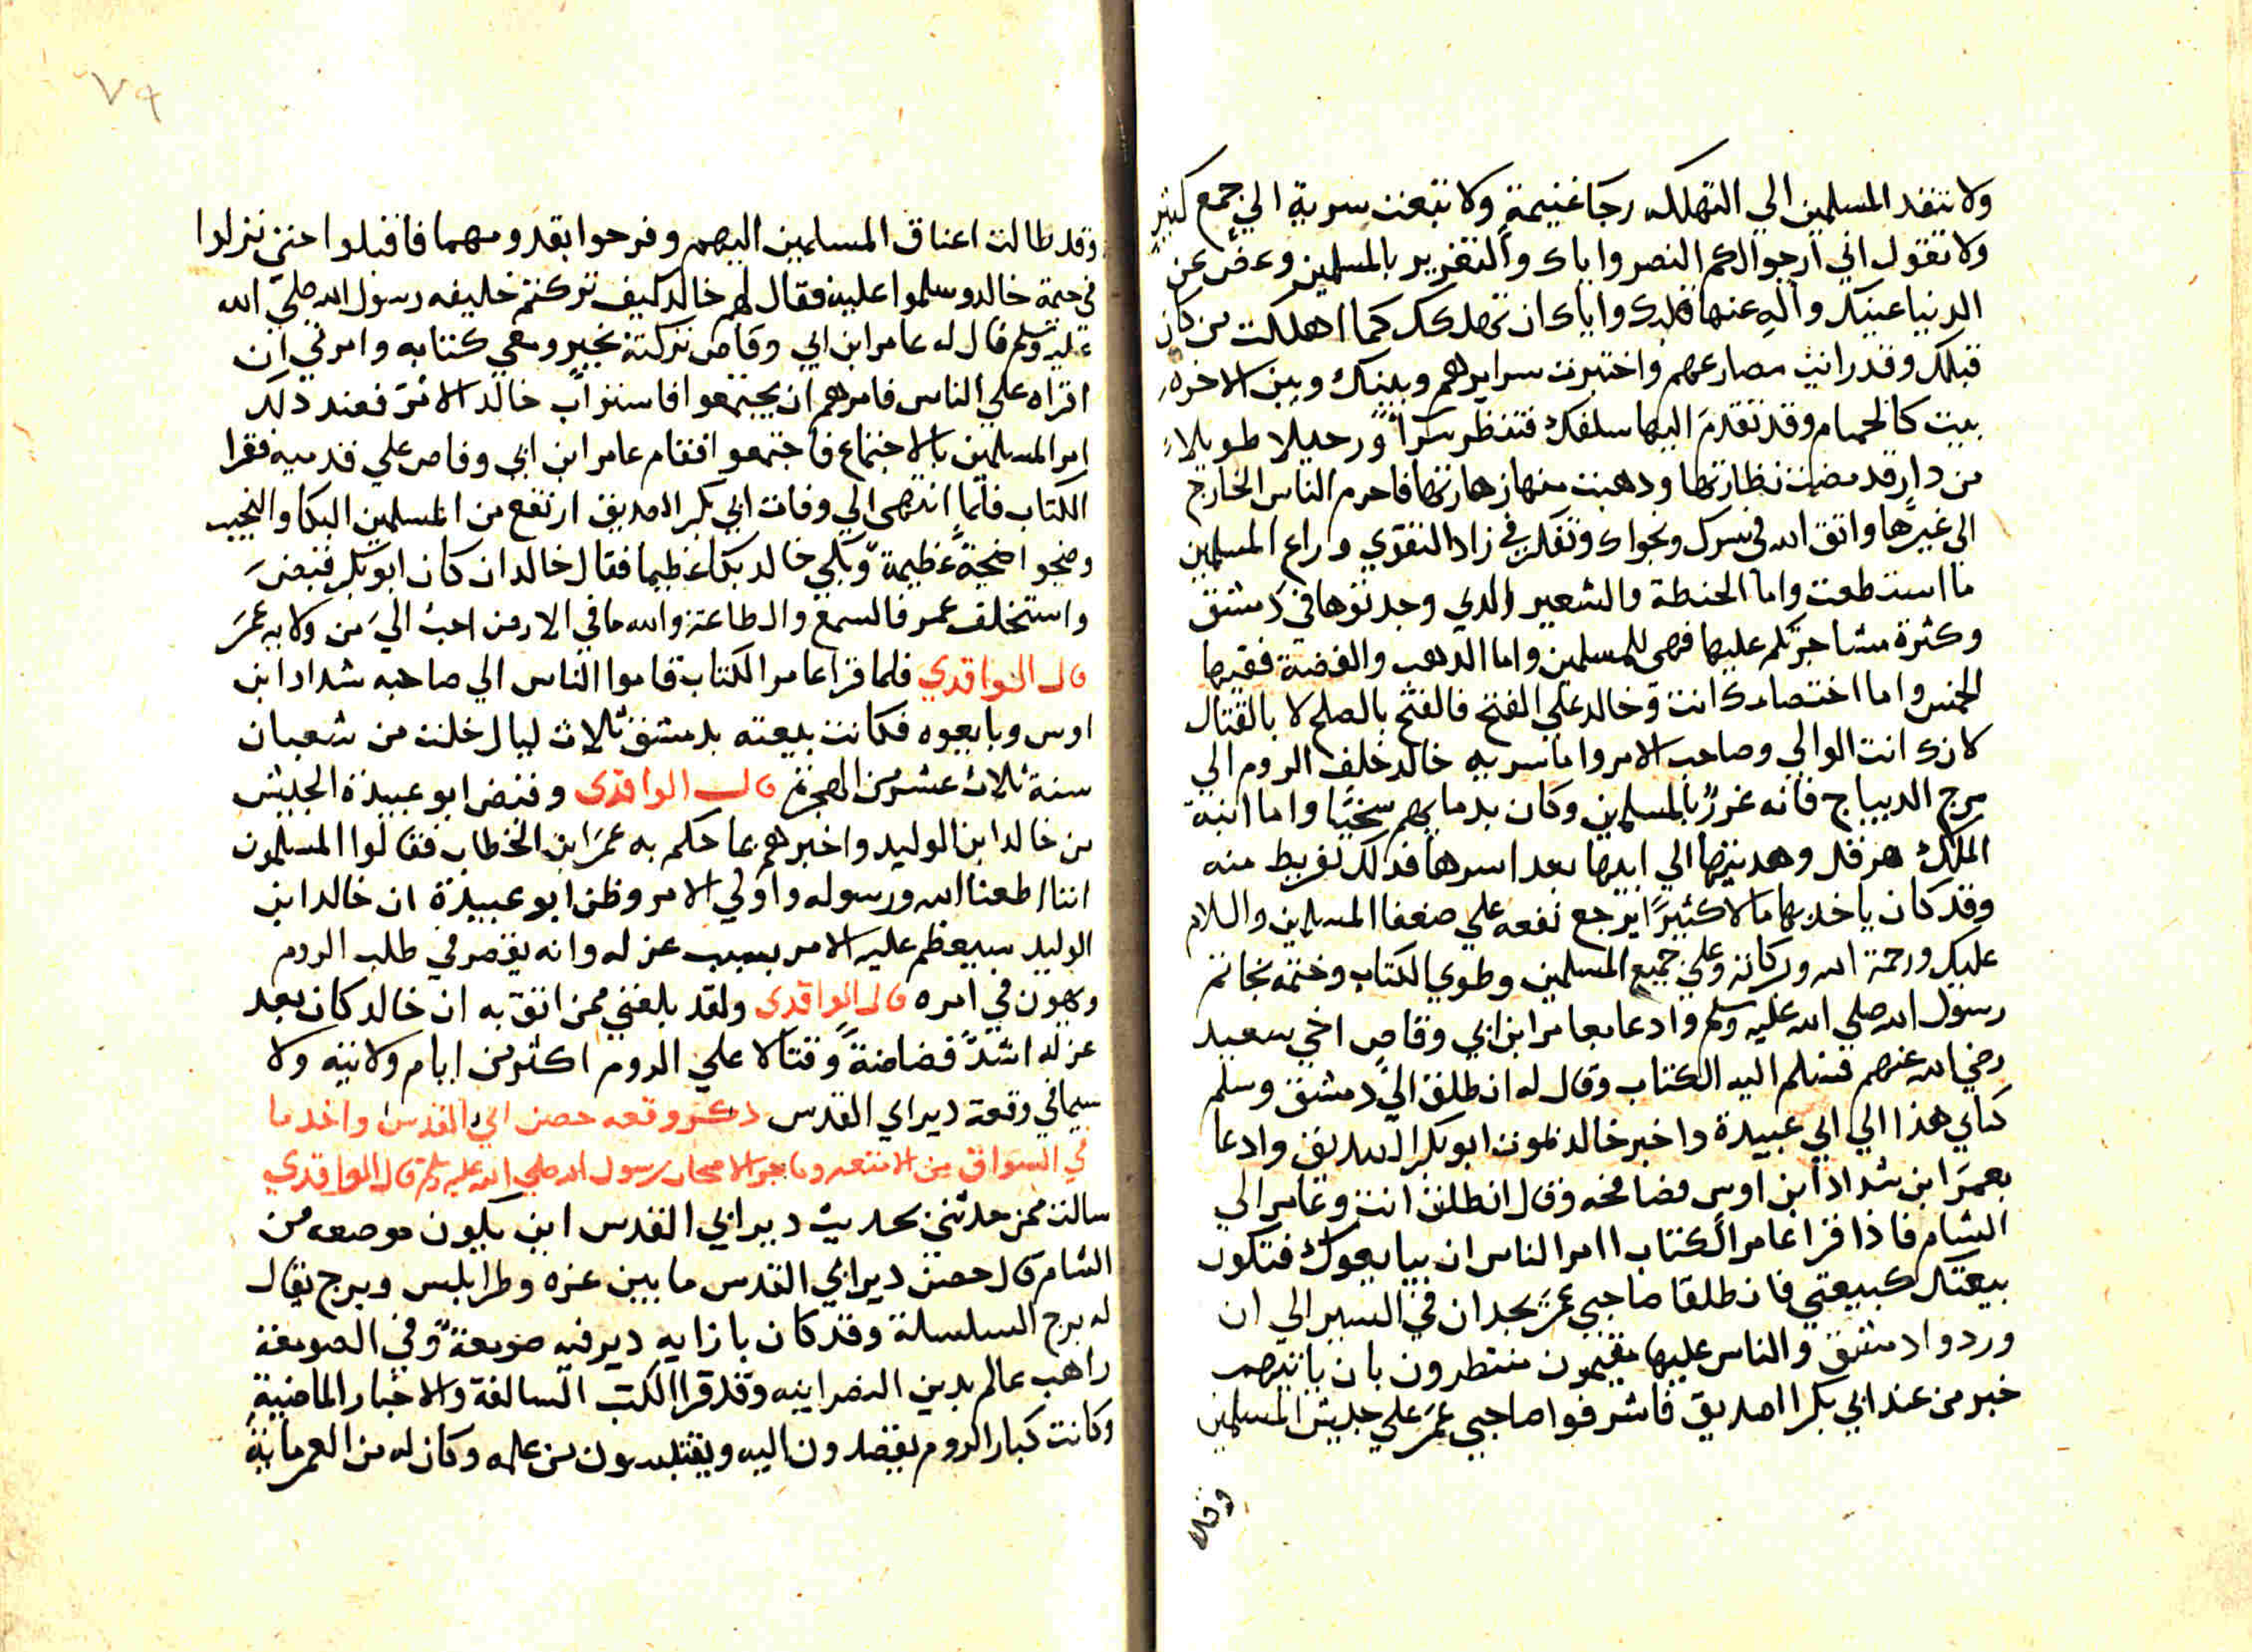 ولا تنفد المسلمين الي التهلكه رجا غنيمةٍ ولا تبعث سرية الي جمع كثيرٍ
ولا تقول اني ارجوا لكم النصر واياك والتغرير بالمسلمين وغض عن
الدنيا عينيك وآلهِ عنها قلبك واياك ان تهلكك كما اهلكت من كان
قبلك وقد رايت مصارعهم واختبرت سرايرهم وبينك وبين الاخره
بيت كالحمام وقد تقدم اليها سلفك فتنظر سرًا ورحيلا طويلا
من دار قد مضت نظارتها ودهبت منها زهارتها فاحرم الناس الخارج
الي غيرها واتق الله في سرك ونجواك وتفكر في زاد التقوي وراع المسلمين
ما استطعت واما الحنطة والشعير الدي وجدتوها في دمشق
وكثرة مشاجرتكم عليها فهي للمسلمين واما الدهب والفضة ففيها
الخمس واما اختصامك انت وخالد علي الفتح فالفتح بالصلح لا بالقتال
لانك انت الوالي وصاحب الامر واما سريه خالد خلف الروم الي
مرج الديباج فانه غررٌ بالمسلمين وكان بدمايهم سخيًا واما ابنة
الملك هرقل وهديتها الي ابيها بعد اسرها فدلك تفريط منه
وقد كان ياخد بها مالا كثيرًا يرجع نفعه علي ضعفا المسلمين والسلام
عليك ورحمة الله وبركاته وعلي جميع المسلمين وطوي الكتاب وختمه بخاتم
رسول الله صلي الله عليه وسلم وادعا بعامر ابن ابي وقاص اخي سعيد
رضي الله عنهم فسلم اليه الكتاب وقال له انطلق الي دمشق وسلم
كتابي هذا الي ابي عبيدة واخبر خالد بموت ابو بكر الصديق وادعا
بعمر ابن شداد ابن اوس فصافحه وقال انطلق انت وعامر الي
الشام فاذا قرا عامر الكتاب اامر الناس ان يبايعوك فتكون
بيعتك كبيعتي فانطلقا صاحبي عمر يجدان في السير الي ان
وردوا دمشق والناس عليها مقيمون منتظرون بان ياتيهم
خبر من عند ابي بكر الصديق فاشرفوا صاحبي عمر علي جيش المسلمين
وقد
٧٩
وقد طالت اعناق المسلمين اليهم وفرحوا بقدومهما فاقبلوا حتي نزلوا
في خيمة خالد وسلموا عليه فقال لهم خالد كيف تركتم خليفه رسول الله صلي الله
عليه وسلم قال له عامر ابن ابي وقاص تركته بخير ومعي كتابه وامرني ان
اقراه علي الناس فامرهم ان يجتمعوا فاستراب خالد الامر فعند دلك
امر المسلمين بالاجتماع فاجتمعوا فقام عامر ابن ابي وقاص علي قدميه فقرا
الكتاب فلما انتهي الي وفات ابي بكر الصديق ارتفع من المسلمين البكا والنحيب
وضجوا ضجةً عظيمةً وبكي خالد بكا عظيما فقال خالد ان كان ابو بكر قبض
واستخلف عمر فالسمع والطاعة والله ما في الارض احب الي من ولايه عمر
قال الواقدي فلما قرا عامر الكتاب قاموا الناس الي صاحبه شداد ابن
اوس وبايعوه فكانت بيعته بدمشق ثلاث ليال خلت من شعبان
سنة ثلاث عشر من الهجرة قال الواقدي وقبض ابو عبيدة الجيش
من خالد ابن الوليد واخبرهم بما حكم به عمر ابن الخطاب فقالوا المسلمون
اننا اطعنا الله ورسوله واولي الامر وظن ابو عبيدة ان خالد ابن
الوليد سيعظم عليه الامر بسبب عزله وانه يقصر في طلب الروم
ويهون في امره قال الواقدي ولقد بلغني ممن اثق به ان خالد كان بعد
عزله اشدّ فضاضةً وقتالا علي الروم اكثر من ايام ولايته ولا
سيما في وقعة دير ابي القدس دكر وقعه حصن ابي القدس واخد ما
في السواق من الامتعه وما جرا لاصحاب رسول الله صلي الله عليه وسلم قال الواقدي
سالت ممن حدثني بحديث دير ابي القدس اين يكون موضعه من
الشام قال حصن دير ابي القدس ما بين عزه وطرابلس وبرج يقال
له برج السلسلة وقد كان بازايه دير فيه صومعةٌ وفي الصومعة
راهب عالم بدين النصرانيه وقد قرا الكتب السالفة والاخبار الماضية
وكانت كبار الروم يقصدون اليه ويقتبسون من علمه وكان له من العمر ماية